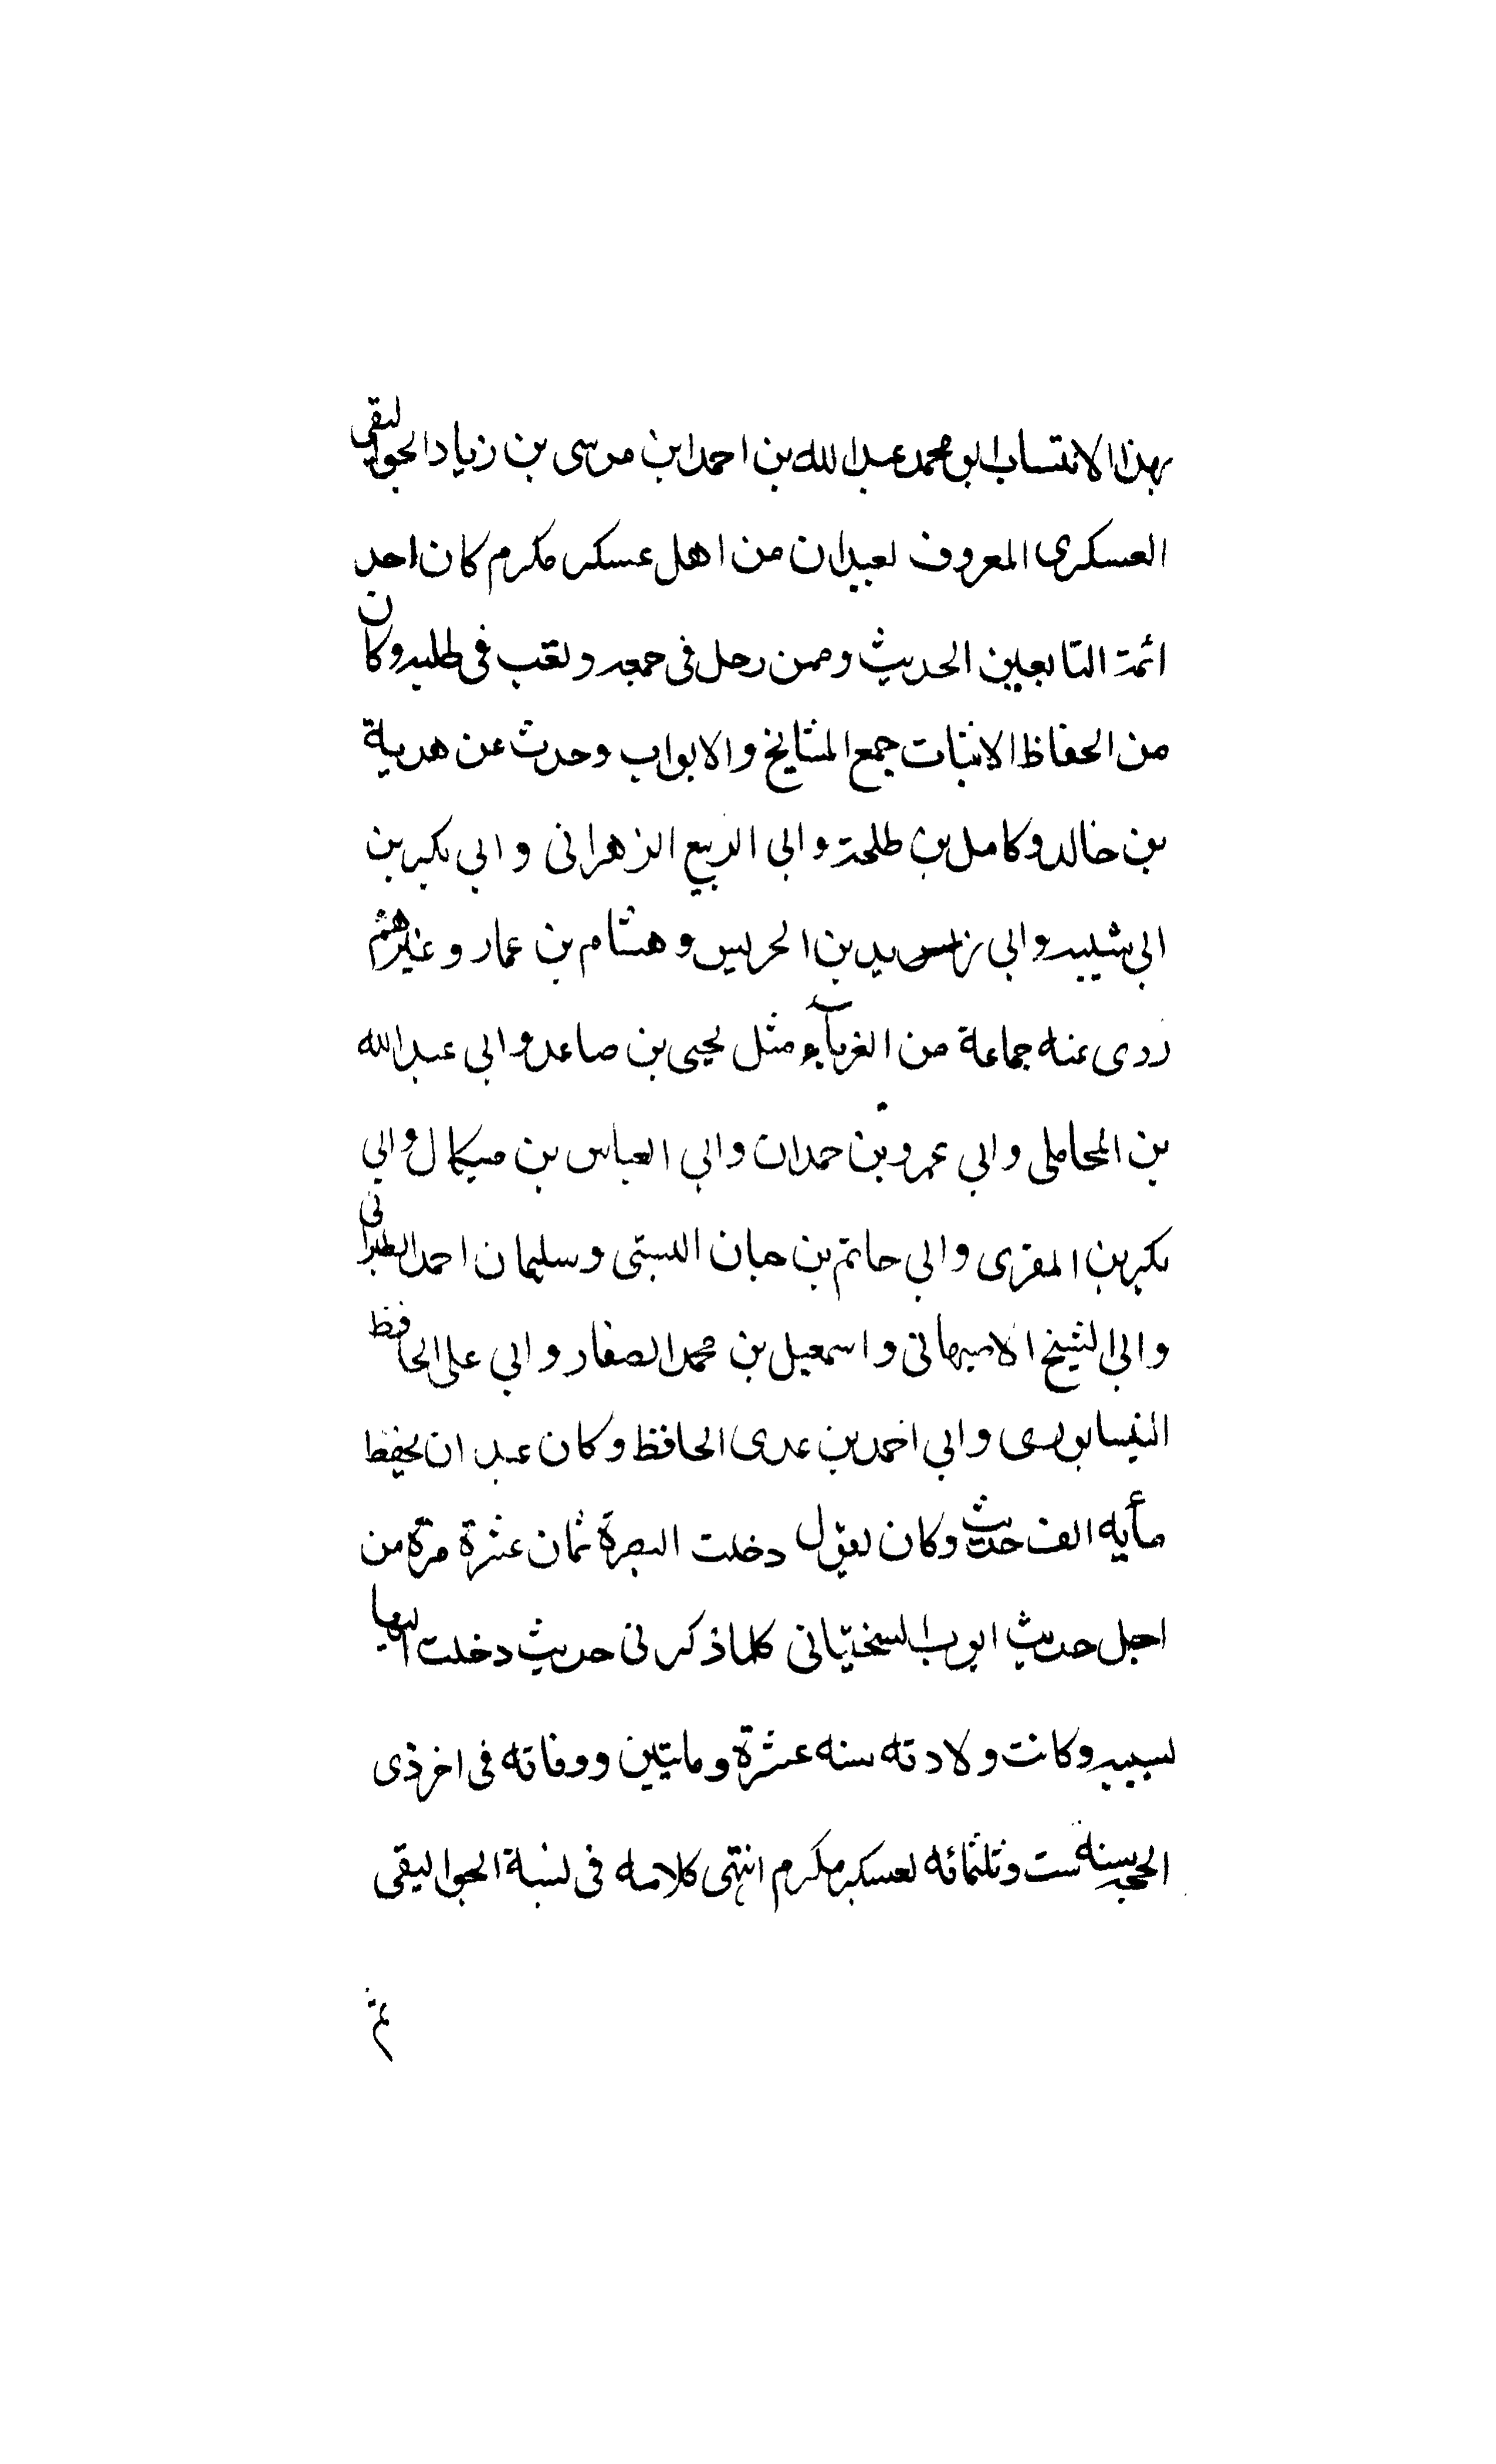 بهذا الانتساب ابو محمد عبد الله بن احمد ابن موسى بن زياد الجواليقي
العسكرى المعروف لعبدان من اهل عسكر مكرم كان احد
ائمة التابعين الحديث وممن رحل فى جمعه ولقب فى طلبه وكان
من الحفاظ الاثبات جمع المشايخ والابواب وحدث عن هدية
بن خالد وكامل بن طلحة وابى الربيع الزهرانى وابي بكر بن
ابى شيبه وابي بن الحريس وهشام بن عمار وغيرهم
روى عنه جماعة من الغرباء مثل يحيى بن صاعد وابي عبد الله
بن المحاملى وابي عمرو بن حمدان وابي العباس بن ميكال وابي
بكر بن المقرى وابي حاتم بن حبان البستى وسليمان احمد الطبرانى
وابى الشيخ الاصبهانى واسمعيل بن محمد الصفار وابي على الحافظ
النيسابورى وابي احمد بن عدى الحافظ وكان عبدان يحفظ
مأيه الف حديث وكان يقول دخلت البصرة ثمان عشرة مرة من
اجل حديث ايوب السختيانى كلما ذكر نى حديث دخلت اليها
لسببه وكانت ولادته سنه عشرة وماتيين ووفاته فى اخر ذى
الحجه سنه ست وثلثمائه لعسكر مكرم انتهى كلامه فى نسبة الجواليقى
تم